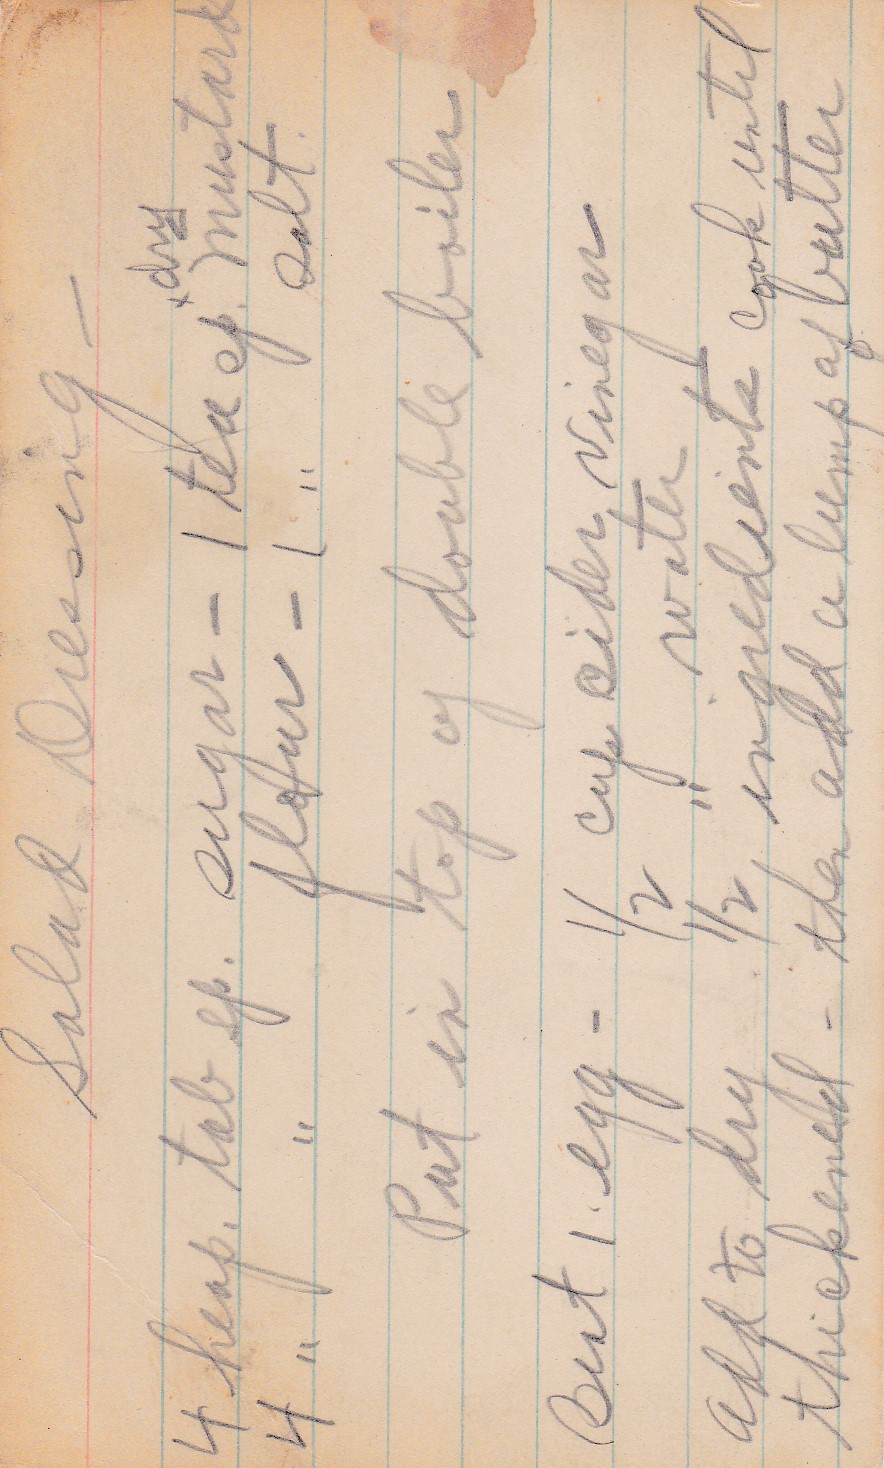 Salad Dressing –
4 heap. tab sp. sugar – 1 tea sp. x dry Mustard
4 " " flour – 1 " salt.
Put in top of double boiler
Beat 1. egg – 1/2 cup cider vinegar
1/2 " water
add to dry ingredients cook until
thickened – then add a lump of butter